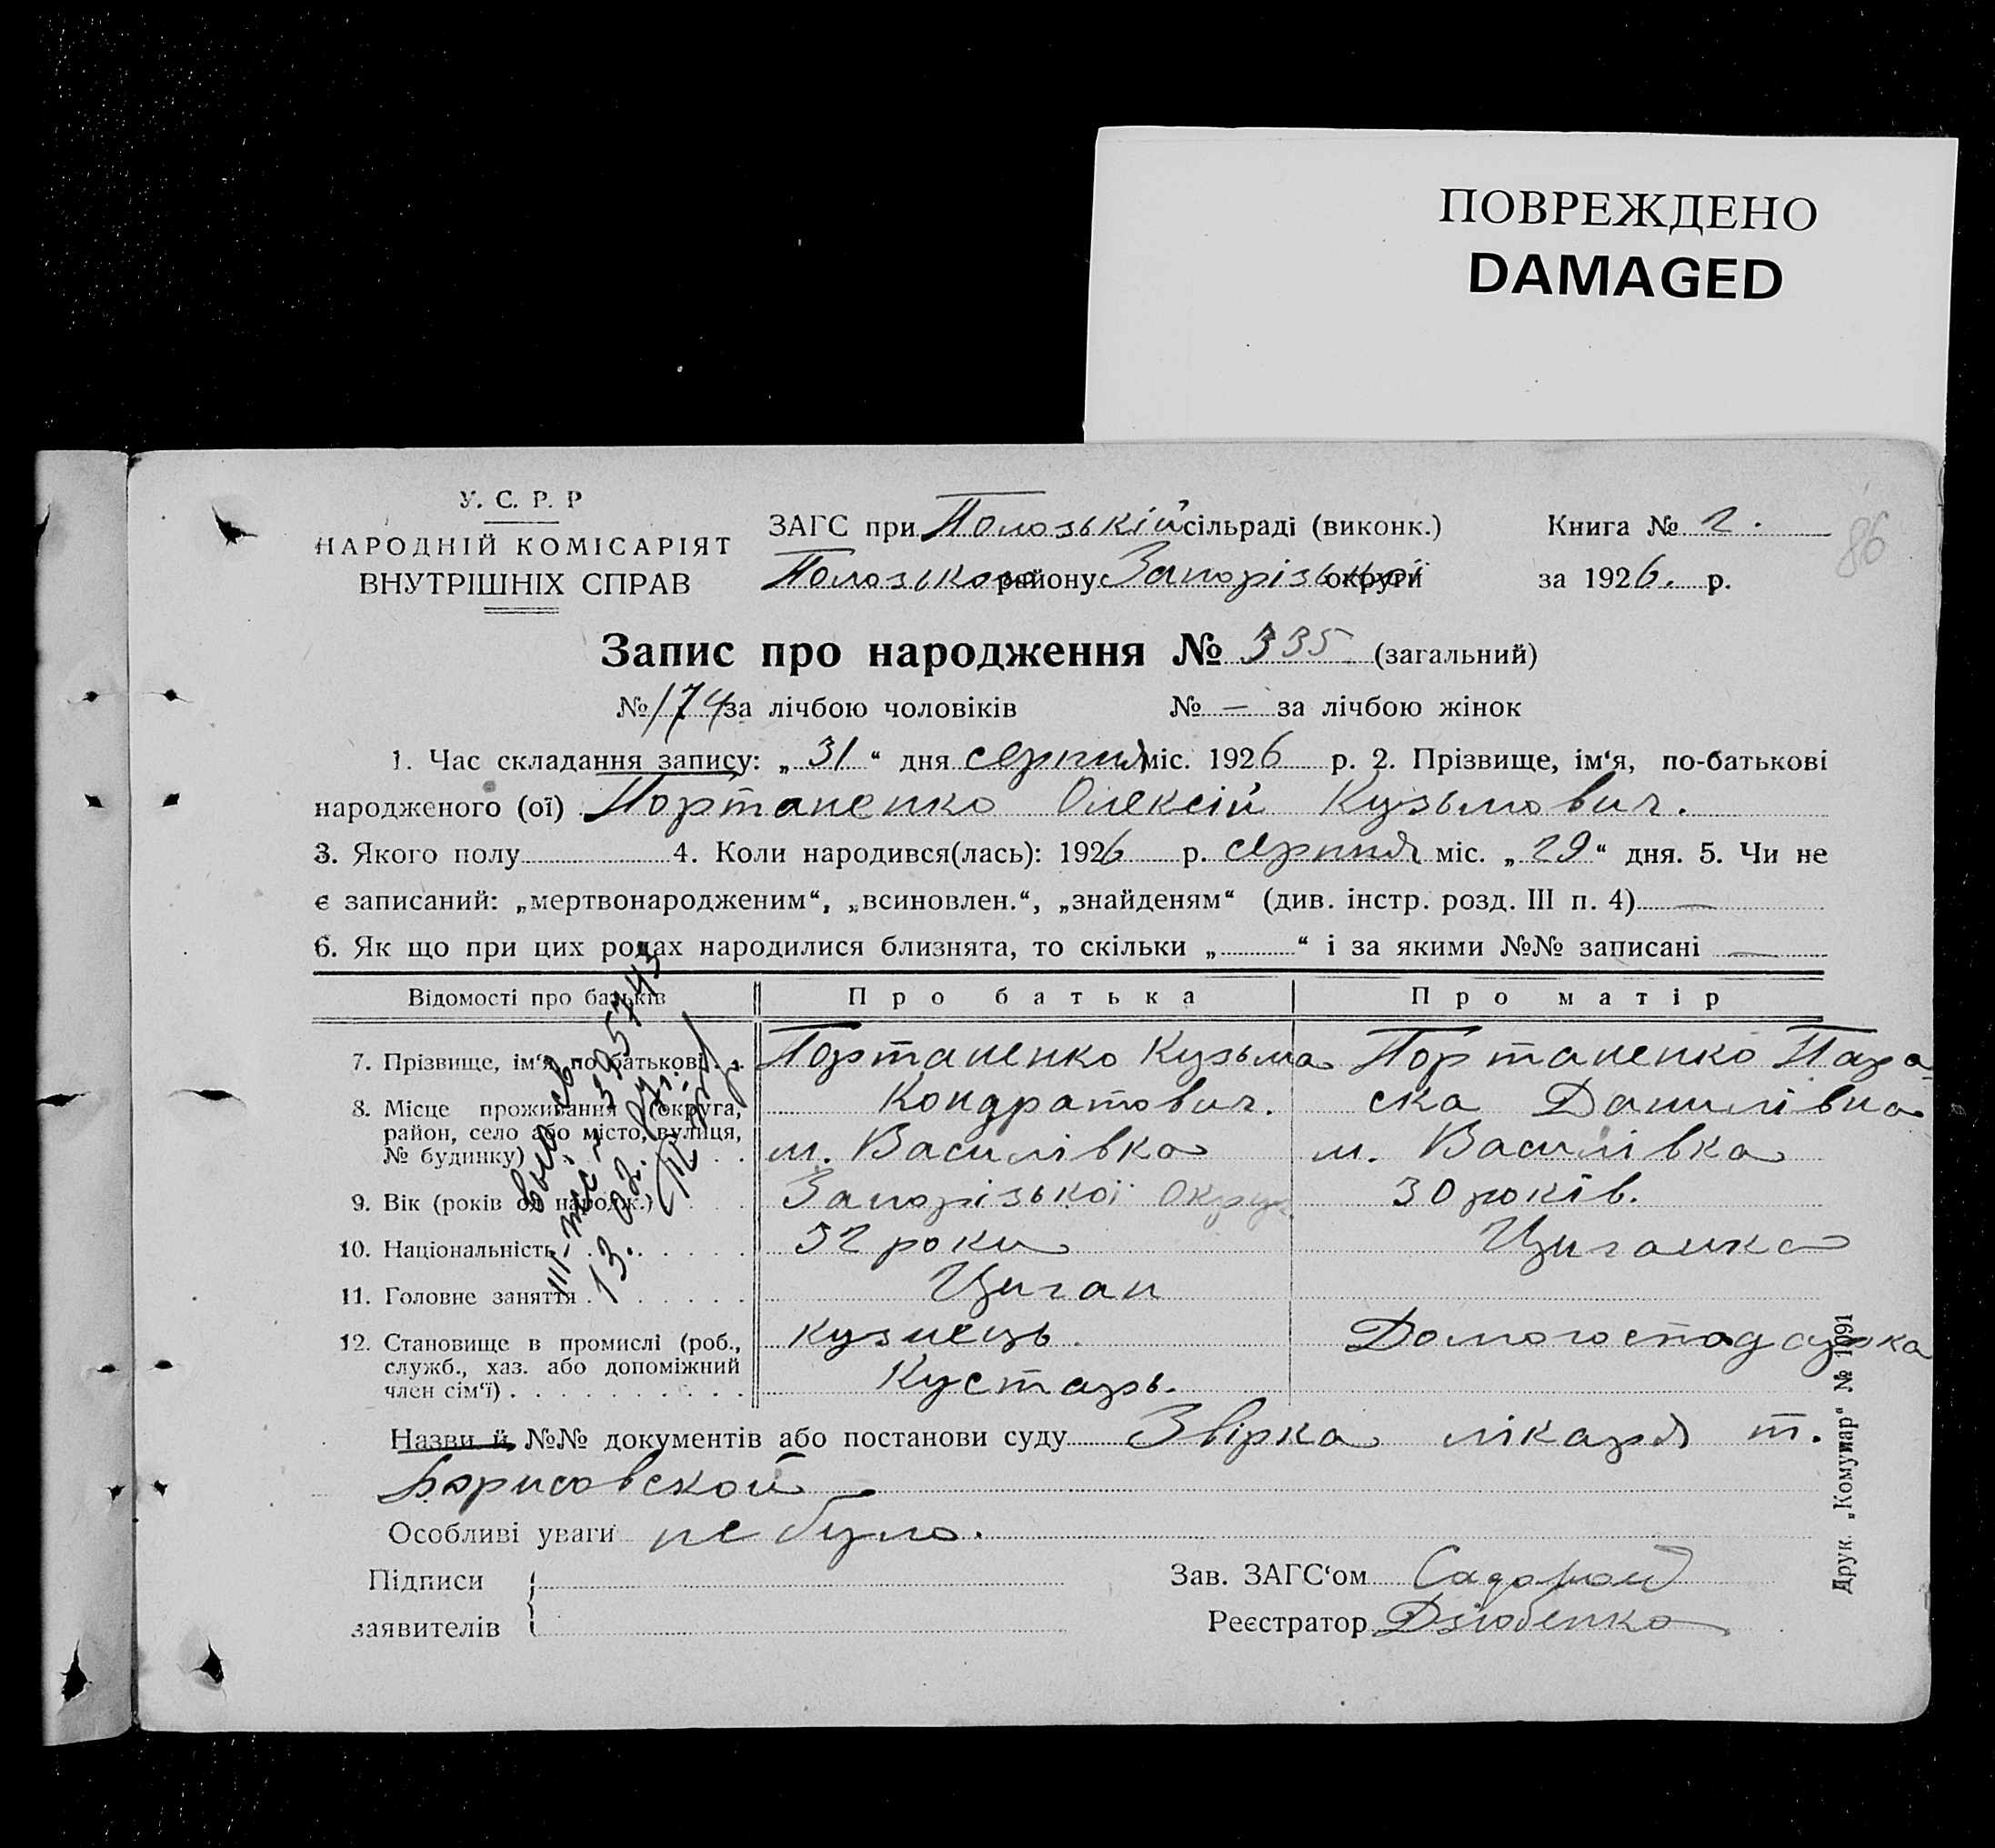 ПОВРЕЖДЕНО
DAMAGED
У. С. Р. Р
НАРОДНІЙ КОМІСАРІЯТ
ВНУТРІШНІХ СПРАВ
ЗАГС при Полозькій сільраді (виконк.)
Книга № 2.
86
Полозького району Запорізької округи
за 1926. р.
Запис про народження № 335 (загальний)
№ 174 за лічбою чоловіків № — за лічбою жінок
1. Час складання запису: „31“ дня серпня міс. 1926 р. 2. Прізвище, ім‘я, по-батькові
народженого (ої) Портаненко Олексій Кузьмович.
3. Якого полу 4. Коли народився(лась): 1926 р. серпня міс. „29“ дня. 5. Чи не
є записаний: „мертвонародженим“, „всиновлен.“, „знайденям“ (див. інстр. розд. III п. 4) —
6. Як що при цих родах народилися близнята, то скільки „ “ і за якими №№ записані —
Відомості про батьків
Про батька
Про матір
7. Прізвище, ім‘я, по-батькові . .
Портаненко Кузьма
Портаненко Пара
8. Місце проживання (округа,
район, село або місто, вулиця,
№ будинку) . . .
Кондратович.
ска Данилівна
м. Василівка
м. Василівка
9. Вік (років од народж.) . . .
Запорізької Округ
30 років.
10. Національність . . . . . .
32 роки
Циганка
11. Головне заняття . . . . . .
Циган
12. Становище в промислі (роб.,
служб., хаз. або допоміжний
член сім‘ї) . . . . . . . . . .
кузнець.
Домогосподарка
Кустарь.
Назви й №№ документів або постанови суду Звірка лікаря т.
Борисовской
Особливі уваги не було.
Підписи
заявителів
Зав. ЗАГС‘ом
Реєстратор Дзюбенко
Друк. „Комунар“ № 1091